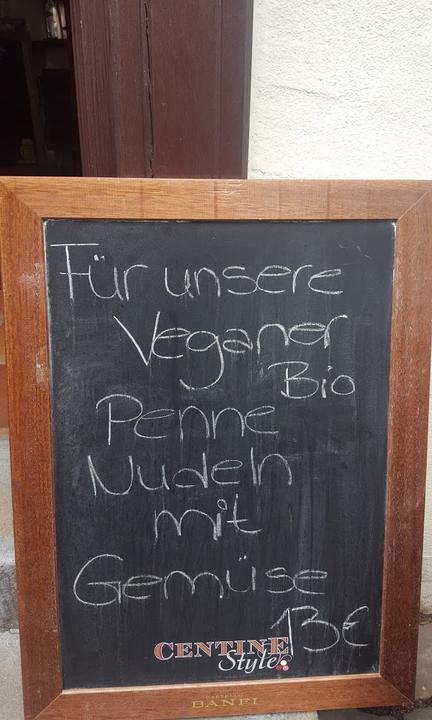 Für unsere
Veganer
Bio
Penne
Nudeln
mit
Gemüse
13€
CENTINE
Style
CASTELLO
BANFI